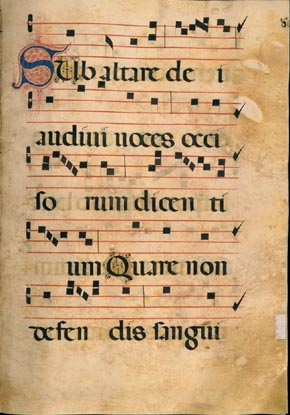 Sub altare de i
audiui uoces occi
so rum dicen ti
um Quare non
defen dis sangui